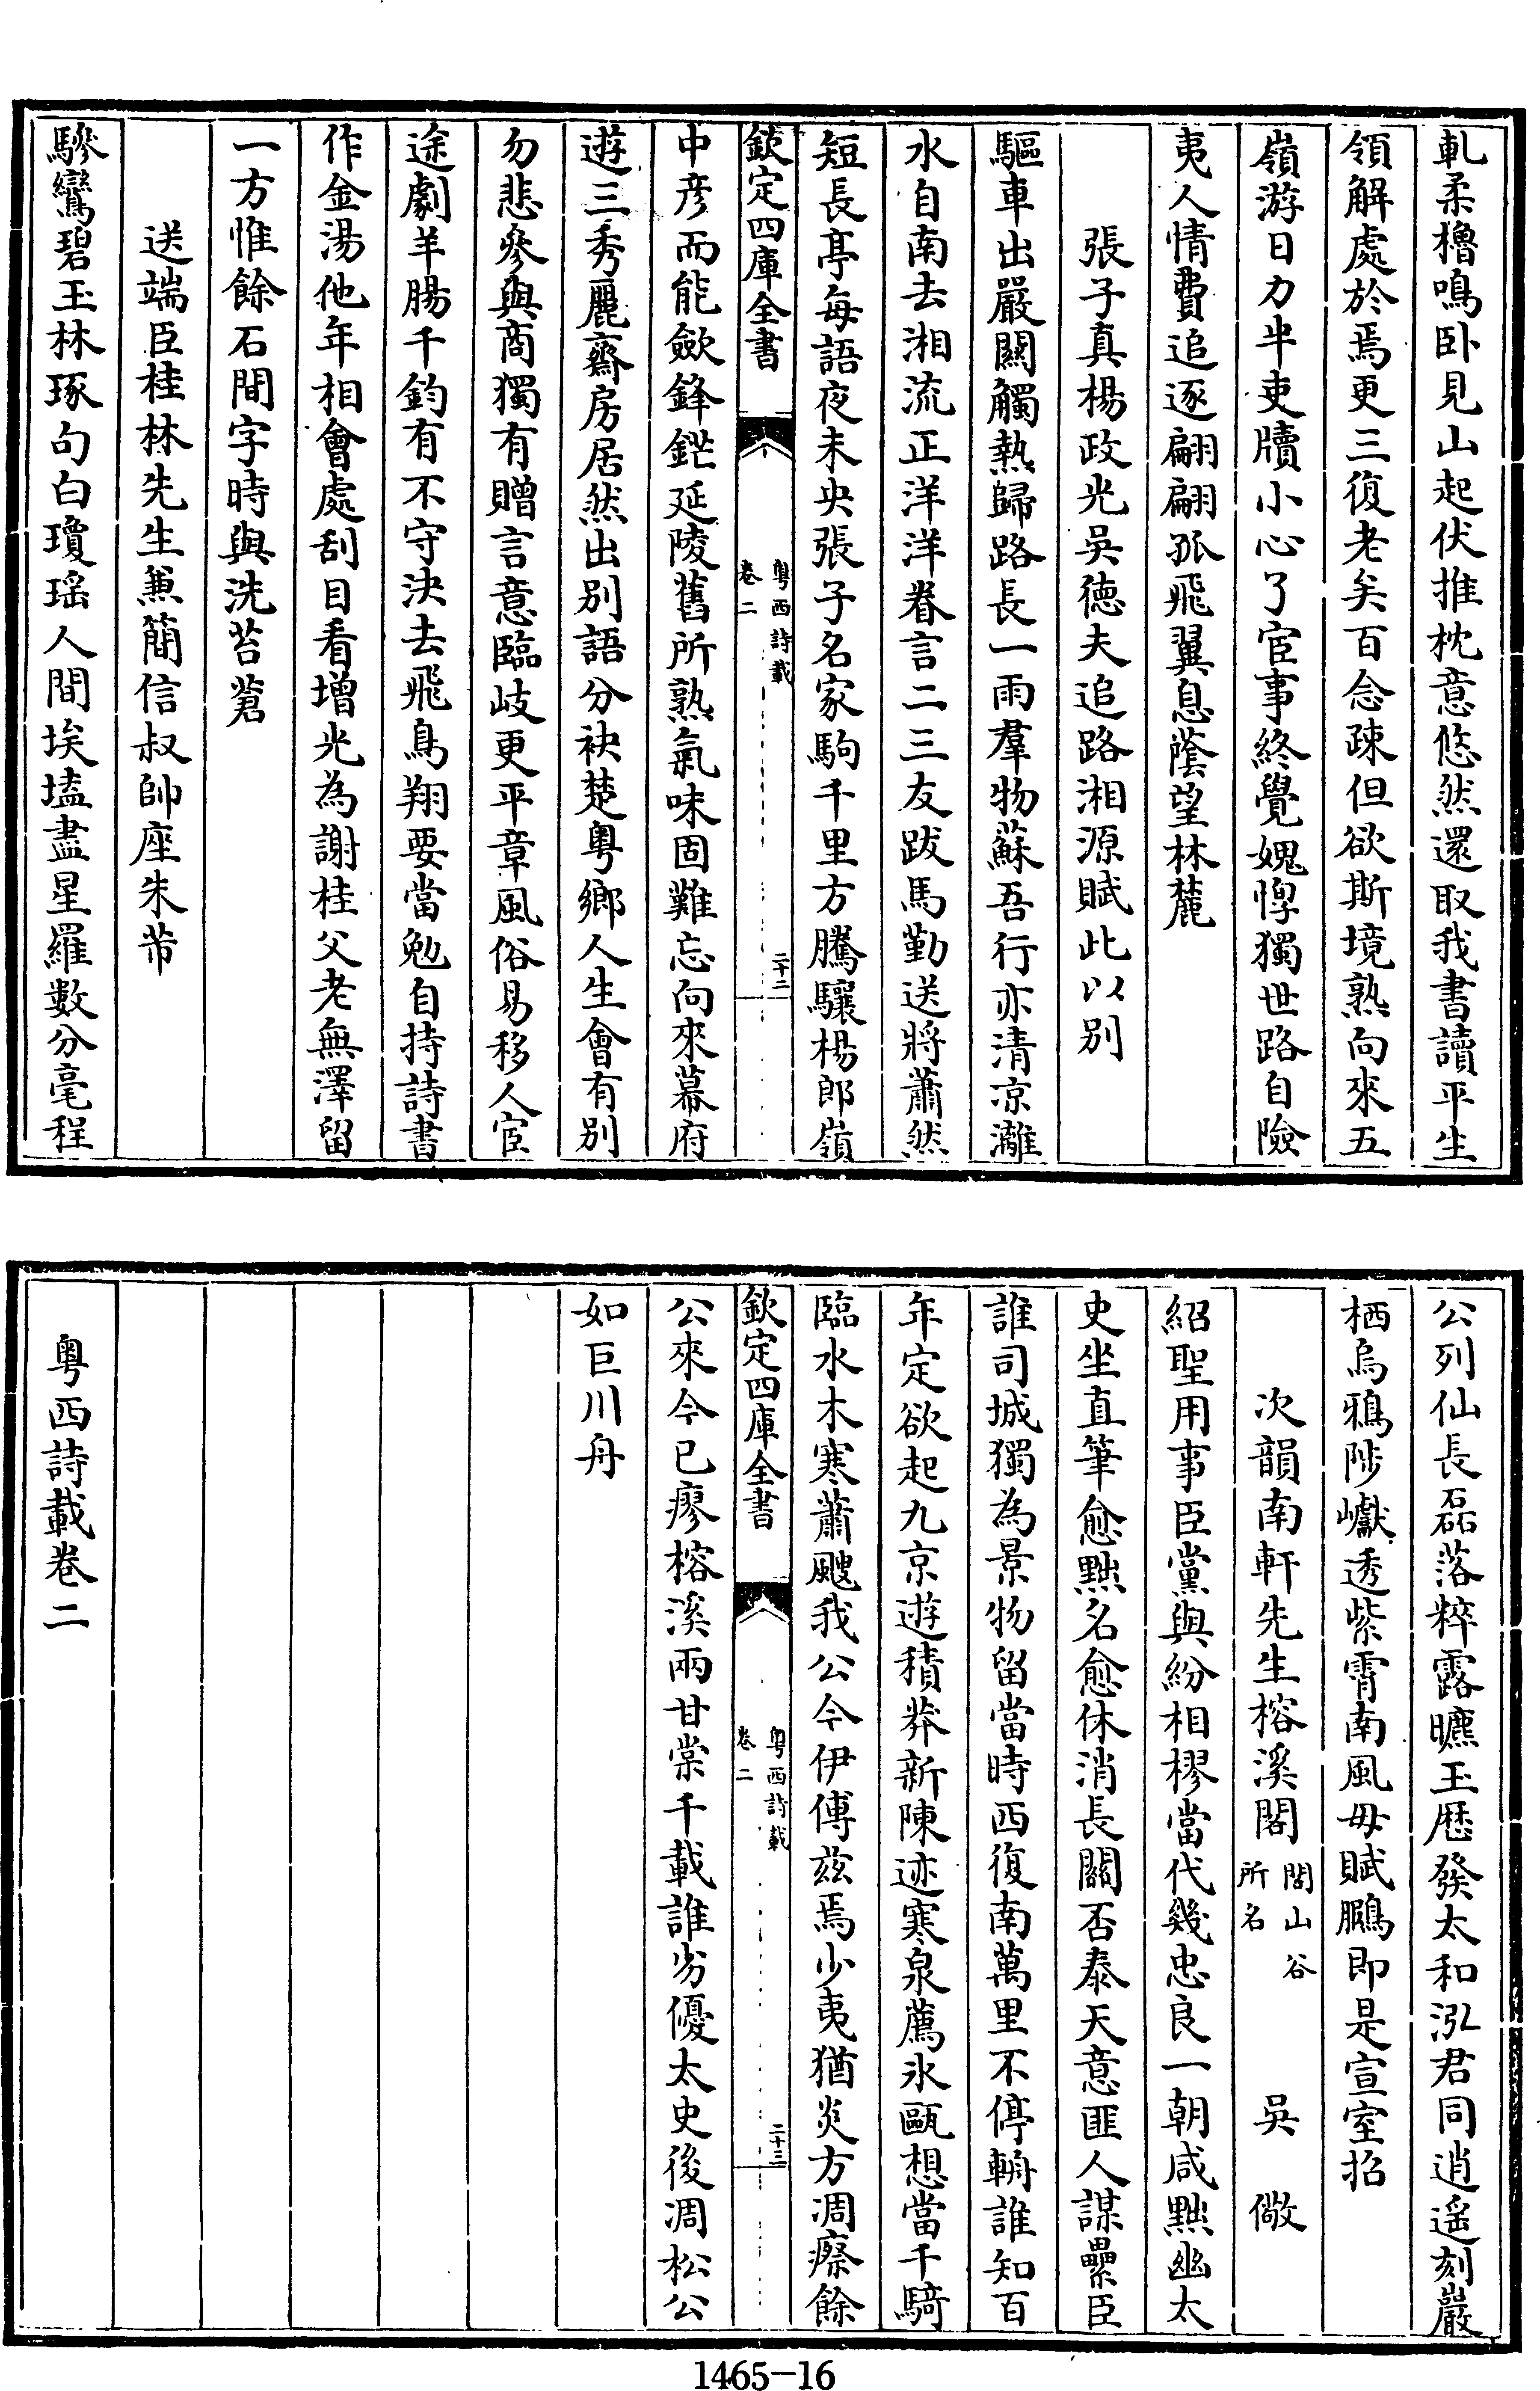 軋柔櫓鳴卧見山起伏推枕意悠然還取我書讀平生
領解處於焉更三復老矣百念疎但欲斯境熟向來五
嶺游日力半吏牘小心了宦事終覺媿惸獨世路自險
夷人情費追逐翩翩孤飛翼息蔭望林麓
張子真楊政光吳德夫追路湘源賦此以别
驅車出嚴闗觸熱歸路長一雨羣物蘇吾行亦清凉灕
水自南去湘流正洋洋眷言二三友跋馬勤送將蕭然
短長亭每語夜未央張子名家駒千里方騰驤楊郎嶺
欽定四庫全書
粤西詩載
卷二
二十二
中彦而能歛鋒鋩延陵舊所熟氣味固難忘向來幕府
遊三秀麗齋房居然出别語分袂楚粤鄉人生會有别
勿悲參與商獨有贈言意臨岐更平章風俗易移人宦
途劇羊腸千鈞有不守決去飛鳥翔要當勉自持詩書
作金湯他年相會處刮目看增光為謝桂父老無澤留
一方惟餘石間字時與洗苔蒼
送端臣桂林先生兼簡信叔帥座朱芾
驂鸞碧玉林琢句白瓊瑶人間埃壒盡星羅數分毫程
公列仙長磊落粹露曬玉歴發太和泓君同逍遥刻巖
栖烏鴉陟巘透紫霄南風毋賦鵩即是宣室招
次韻南軒先生榕溪閣閣山谷所名 吳儆
紹聖用事臣黨與紛相樛當代幾忠良一朝咸黜幽太
史坐直筆愈黜名愈休消長闗否泰天意匪人謀纍臣
誰司城獨為景物留當時西復南萬里不停輈誰知百
年定欲起九京遊積莽新陳迹寒泉薦氷甌想當千騎
臨水木寒蕭颼我公今伊傅兹焉少夷猶炎方凋瘵餘
欽定四庫全書
粤西詩載
卷二
二十三
公來今已瘳榕溪兩甘棠千載誰劣優太史後凋松公
如巨川舟
粤西詩載卷二
1465-16